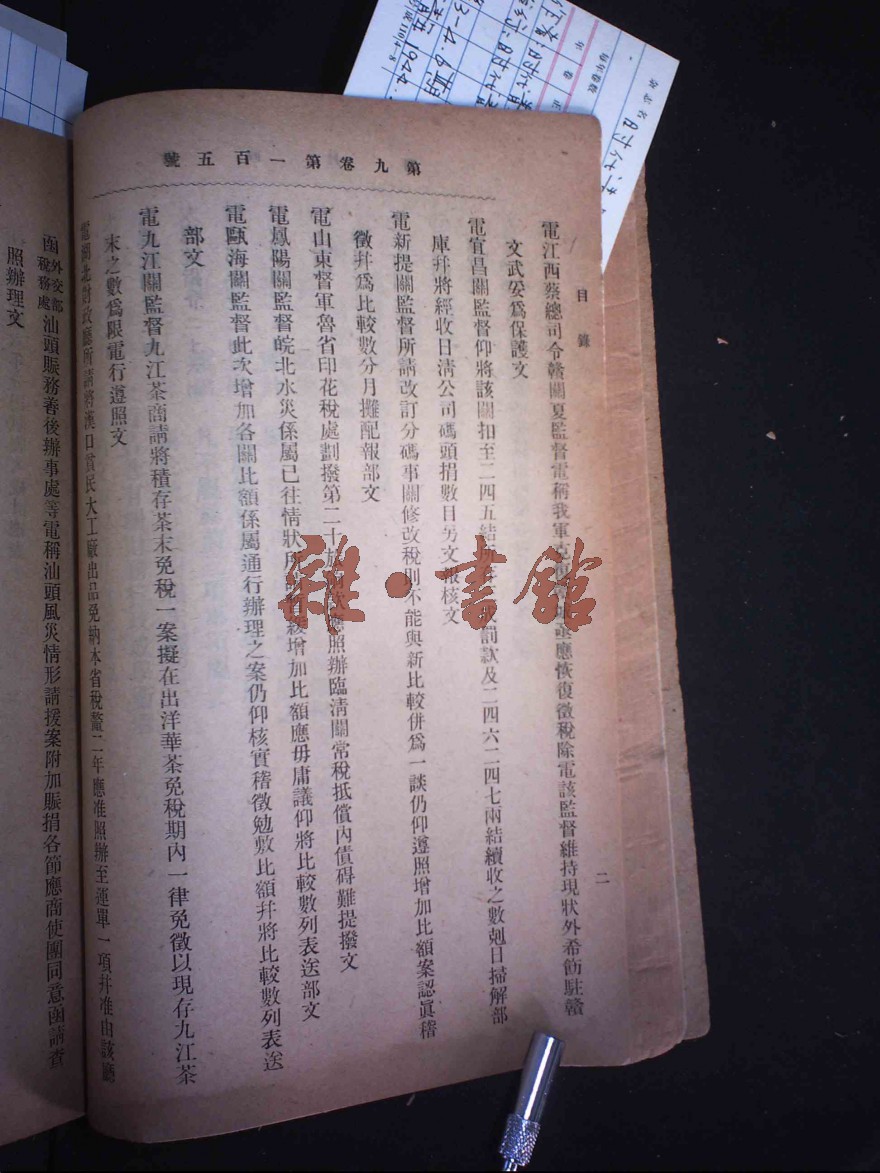 第九卷第一百五號
目錄
二
電江西蔡總司令贛關夏監督電稱我軍克復應恢復徵稅除電該監督維持現狀外希飭駐贛
文武妥爲保護文
電宜昌關監督仰將該關扣至二四五結罰款及二四六二四七兩結續收之數剋日掃解部
庫幷將經收日淸公司碼頭捐數目另文報核文
電新堤關監督所請改訂分碼事關修改稅則不能與新比較併爲一談仍仰遵照增加比額案認眞稽
徵幷爲比較數分月攤配報部文
電山東督軍魯省印花稅處劃撥第二十旅應照辦臨淸關常稅抵償內債碍難提撥文
電鳳陽關監督皖北水災係屬已往情狀所緩增加比額應毋庸議仰將比較數列表送部文
電甌海關監督此次增加各關比額係屬通行辦理之案仍仰核實稽徵勉敷比額幷將比較數列表送
部文
電九江關監督九江茶商請將積存茶末免稅一案擬在出洋華茶免稅期內一律免徵以現存九江茶
末之數爲限電行遵照文
電湖北財政廳所請將漢口貧民大工廠出品免納本省稅釐二年應准照辦至運單一項幷准由該廳
函外交部稅務處汕頭賑務善後辦事處等電稱汕頭風災情形請援案附加賑捐各節應商使團同意函請查
照辦理文
雜·書館
1944.